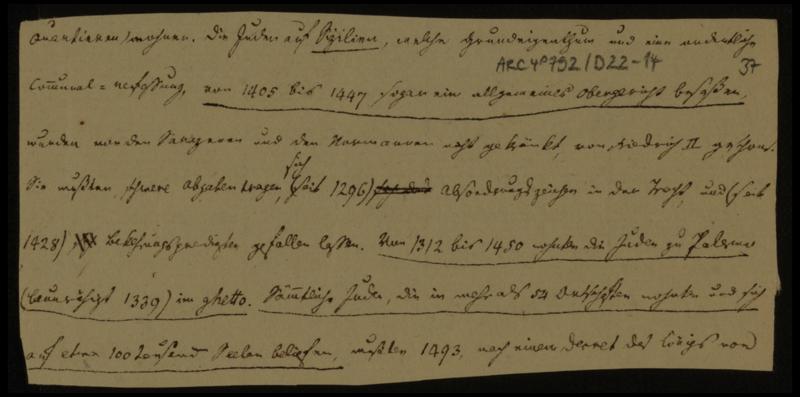 Quartieren wohnen. Die Juden auf Sizilien, welche Grundeigenthum und eine ordentliche
ARC 4º 792 / D22-14
37
Communal-verfassung, von 1405 bis 1447 sogar ein allgemeines Obergericht besaßen,
wurden von den Sarazenen und den Normannen nicht gekränkt, von Friedrich II geschont.
Sie mußten schwere Abgaben tragen, sich (seit 1296) Absonderungszeichen in der Tracht, und (seit
1428) Bekehrungspredigten gefallen lassen. Von 1312 bis 1450 wohnten die Juden zu Palermo
(beunruhigt 1339) im ghetto. Sämmtliche Juden, die in mehr als 54 Ortschaften wohnten und sich
auf etwa 100 tausend Seelen beliefen, mußten 1493, nach einem Decret des Königs von